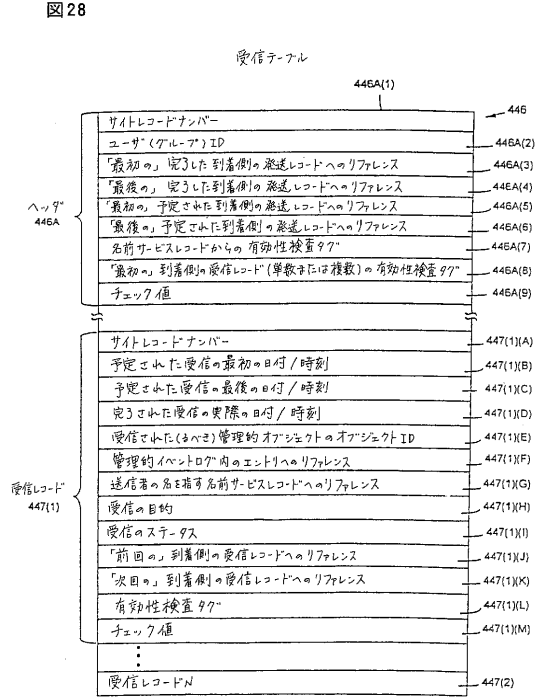 図28
受信テーブル
446A(1)
446
サイトレコードナンバー
ユーザ(グループ)ID 446A(2)
「最初の」完了した到着側の発送レコードへのリファレンス 446A(3)
「最後の」完了した到着側の発送レコードへのリファレンス 446A(4)
「最初の」予定された到着側の発送レコードへのリファレンス 446A(5)
「最後の」予定された到着側の発送レコードへのリファレンス 446A(6)
名前サービスレコードからの有効性検査タグ 446A(7)
「最初の」到着側の受信レコード(単数または複数)の有効性検査タグ 446A(8)
チェック値 446A(9)
ヘッダ
446A
サイトレコードナンバー 447(1)(A)
予定された受信の最初の日付/時刻 447(1)(B)
予定された受信の最後の日付/時刻 447(1)(C)
完了された受信の実際の日付/時刻 447(1)(D)
受信された(るべき)管理的オブジェクトのオブジェクトID 447(1)(E)
管理的イベントログ内のエントリへのリファレンス 447(1)(F)
送信者の名を指す名前サービスレコードへのリファレンス 447(1)(G)
受信の目的 447(1)(H)
受信のステータス 447(1)(I)
「前回の」到着側の受信レコードへのリファレンス 447(1)(J)
「次回の」到着側の受信レコードへのリファレンス 447(1)(K)
有効性検査タグ 447(1)(L)
チェック値 447(1)(M)
受信レコード
447(1)
受信レコードN 447(2)